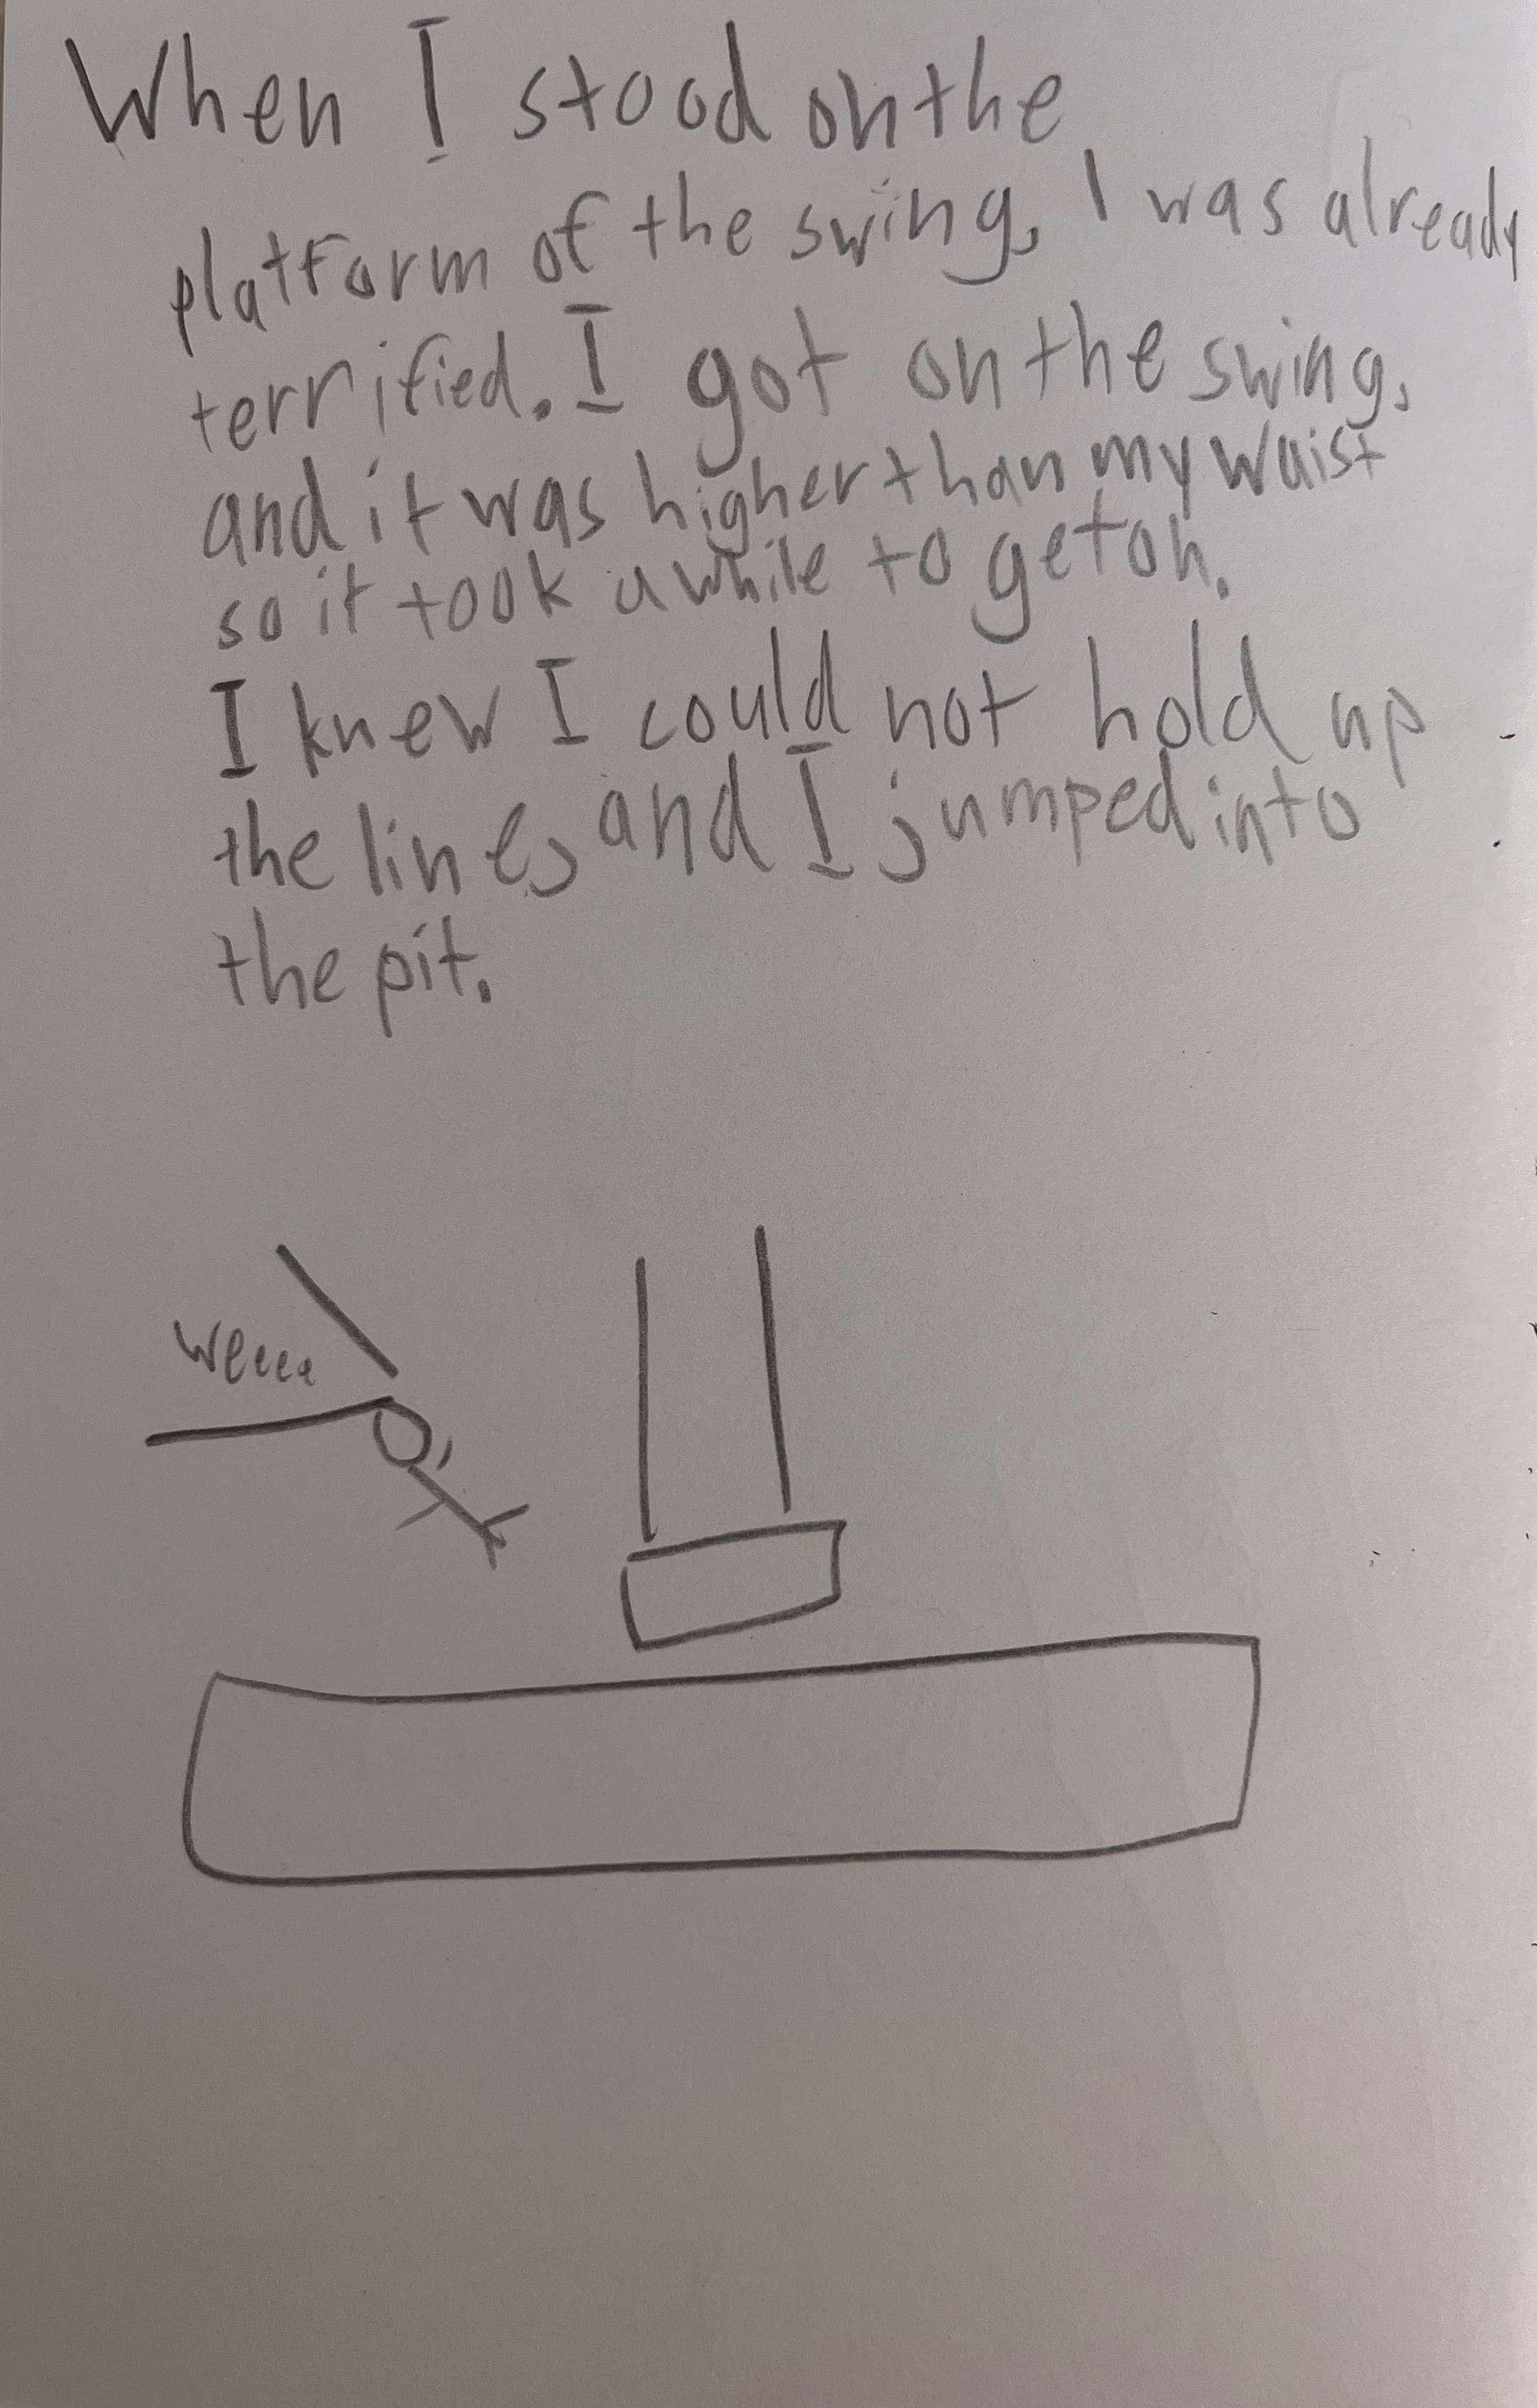 When I stood on the
platform of the swing, I was already
terrified. I got on the swing,
and it was higher than my waist
so it took a while to get on.
I knew I could not hold up
the line, and I jumped into
the pit.
weeee